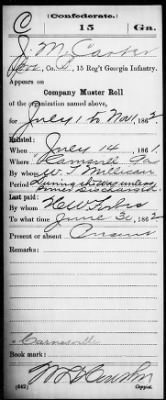 C
(Confederate.)
15 Ga.
J. McCarter
Pvt., Co. , 15 Reg't Georgia Infantry.
Appears on
Company Muster Roll
of the organization named above,
for July 1 to Nov 1, 186
Enlisted:
When July 14, 186
Where
By whom W. T. Millican
Period During the war unless
sooner discharged
Last paid:
By whom
To what time June 30, 186
Present or absent
Remarks:
Carnesville
Book mark:
(642) Copyist.